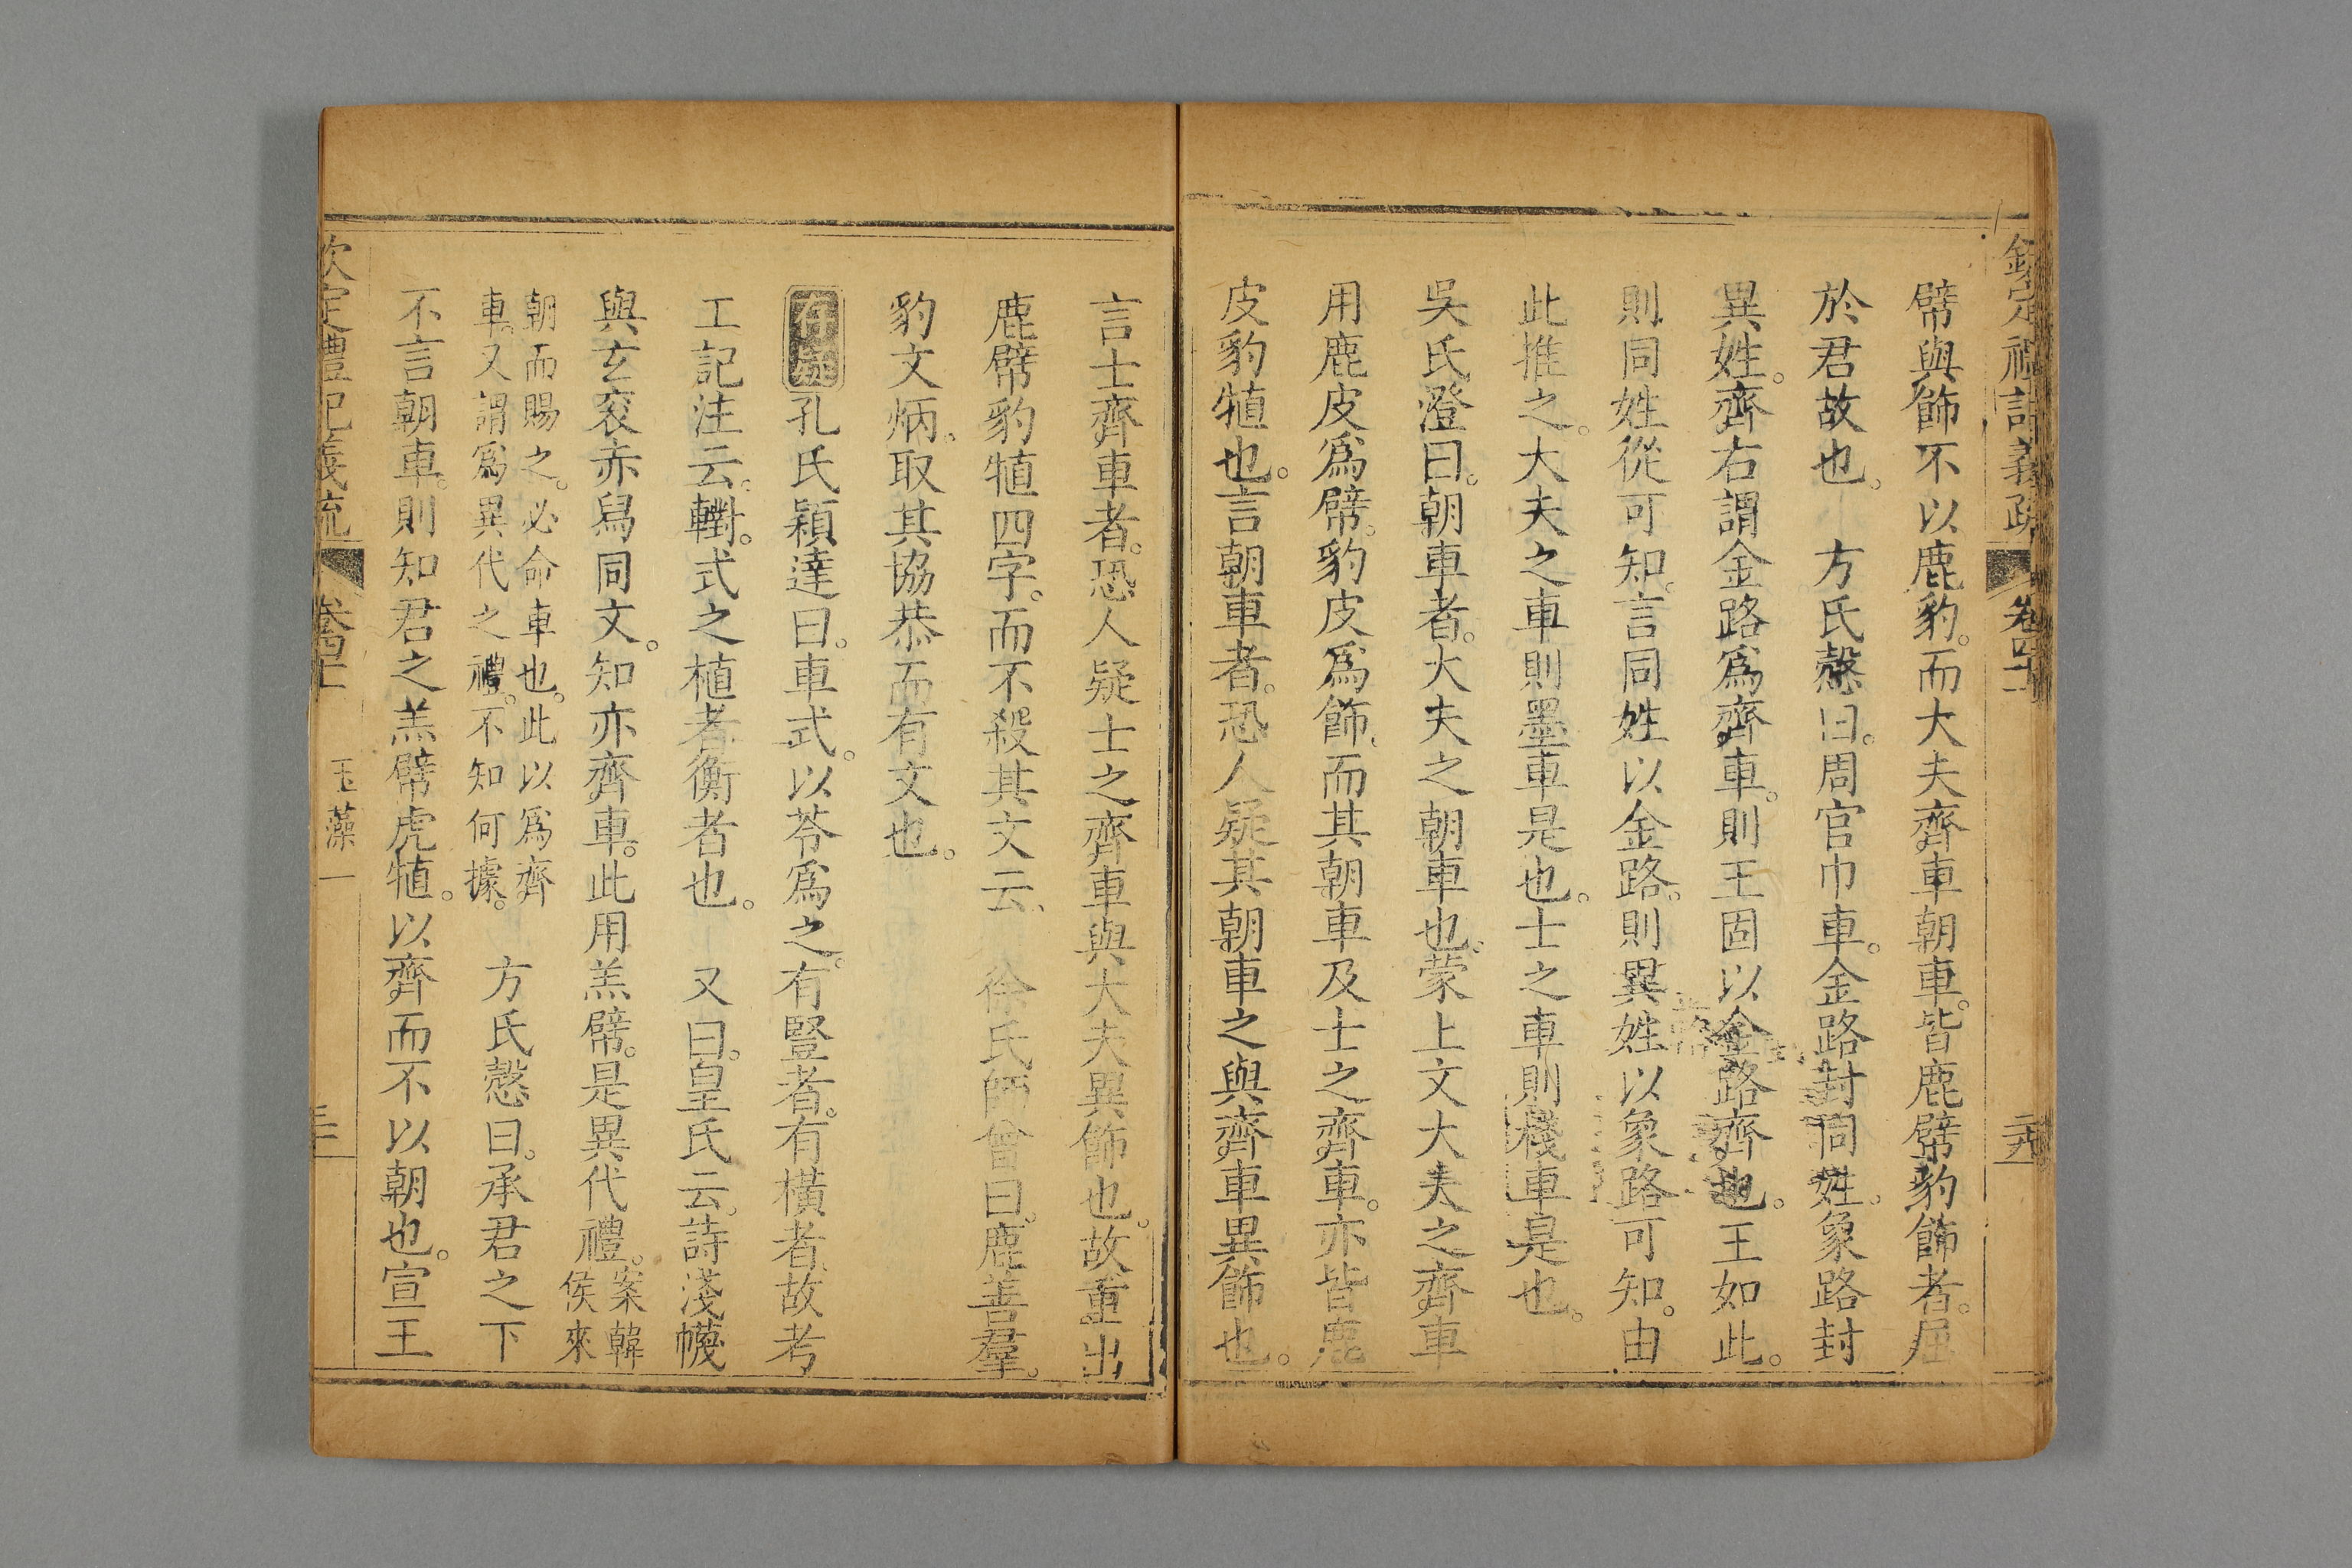 欽定禮記義疏 卷四十一 二十九
幦與飾不以鹿豹。而大夫齊車朝車。皆鹿幦豹飾者。屈
於君故也。 方氏慤曰。周官巾車。金路封同姓。象路封
異姓。齊右謂金路爲齊車。則王固以金路齊也。王如此。
則同姓從可知。言同姓以金路。則異姓以象路可知。由
此推之。大夫之車則墨車是也。士之車則棧車是也。
吳氏澄曰。朝車者。大夫之朝車也。蒙上文大夫之齊車
用鹿皮爲幦。豹皮爲飾。而其朝車及士之齊車。亦皆鹿
皮豹犆也。言朝車者。恐人疑其朝車之與齊車異飾也。
言士齊車者。恐人疑士之齊車與大夫異飾也。故重出
鹿幦豹犆四字。而不殺其文云。 徐氏師曾曰。鹿善羣。
豹文炳。取其協恭而有文也。
存疑 孔氏穎達曰。車式。以苓爲之。有豎者。有橫者。故考
工記注云。轛。式之植者衡者也。 又曰。皇氏云。詩淺幭
與玄衮赤舄同文。知亦齊車。此用羔幦。是異代禮。案韓侯來
朝而賜之。必命車也。此以爲齊
車。又謂爲異代之禮。不知何據。 方氏慤曰。承君之下
不言朝車。則知君之羔幦虎犆。以齊而不以朝也。宣王
欽定禮記義疏 卷四十一 玉藻一 三十